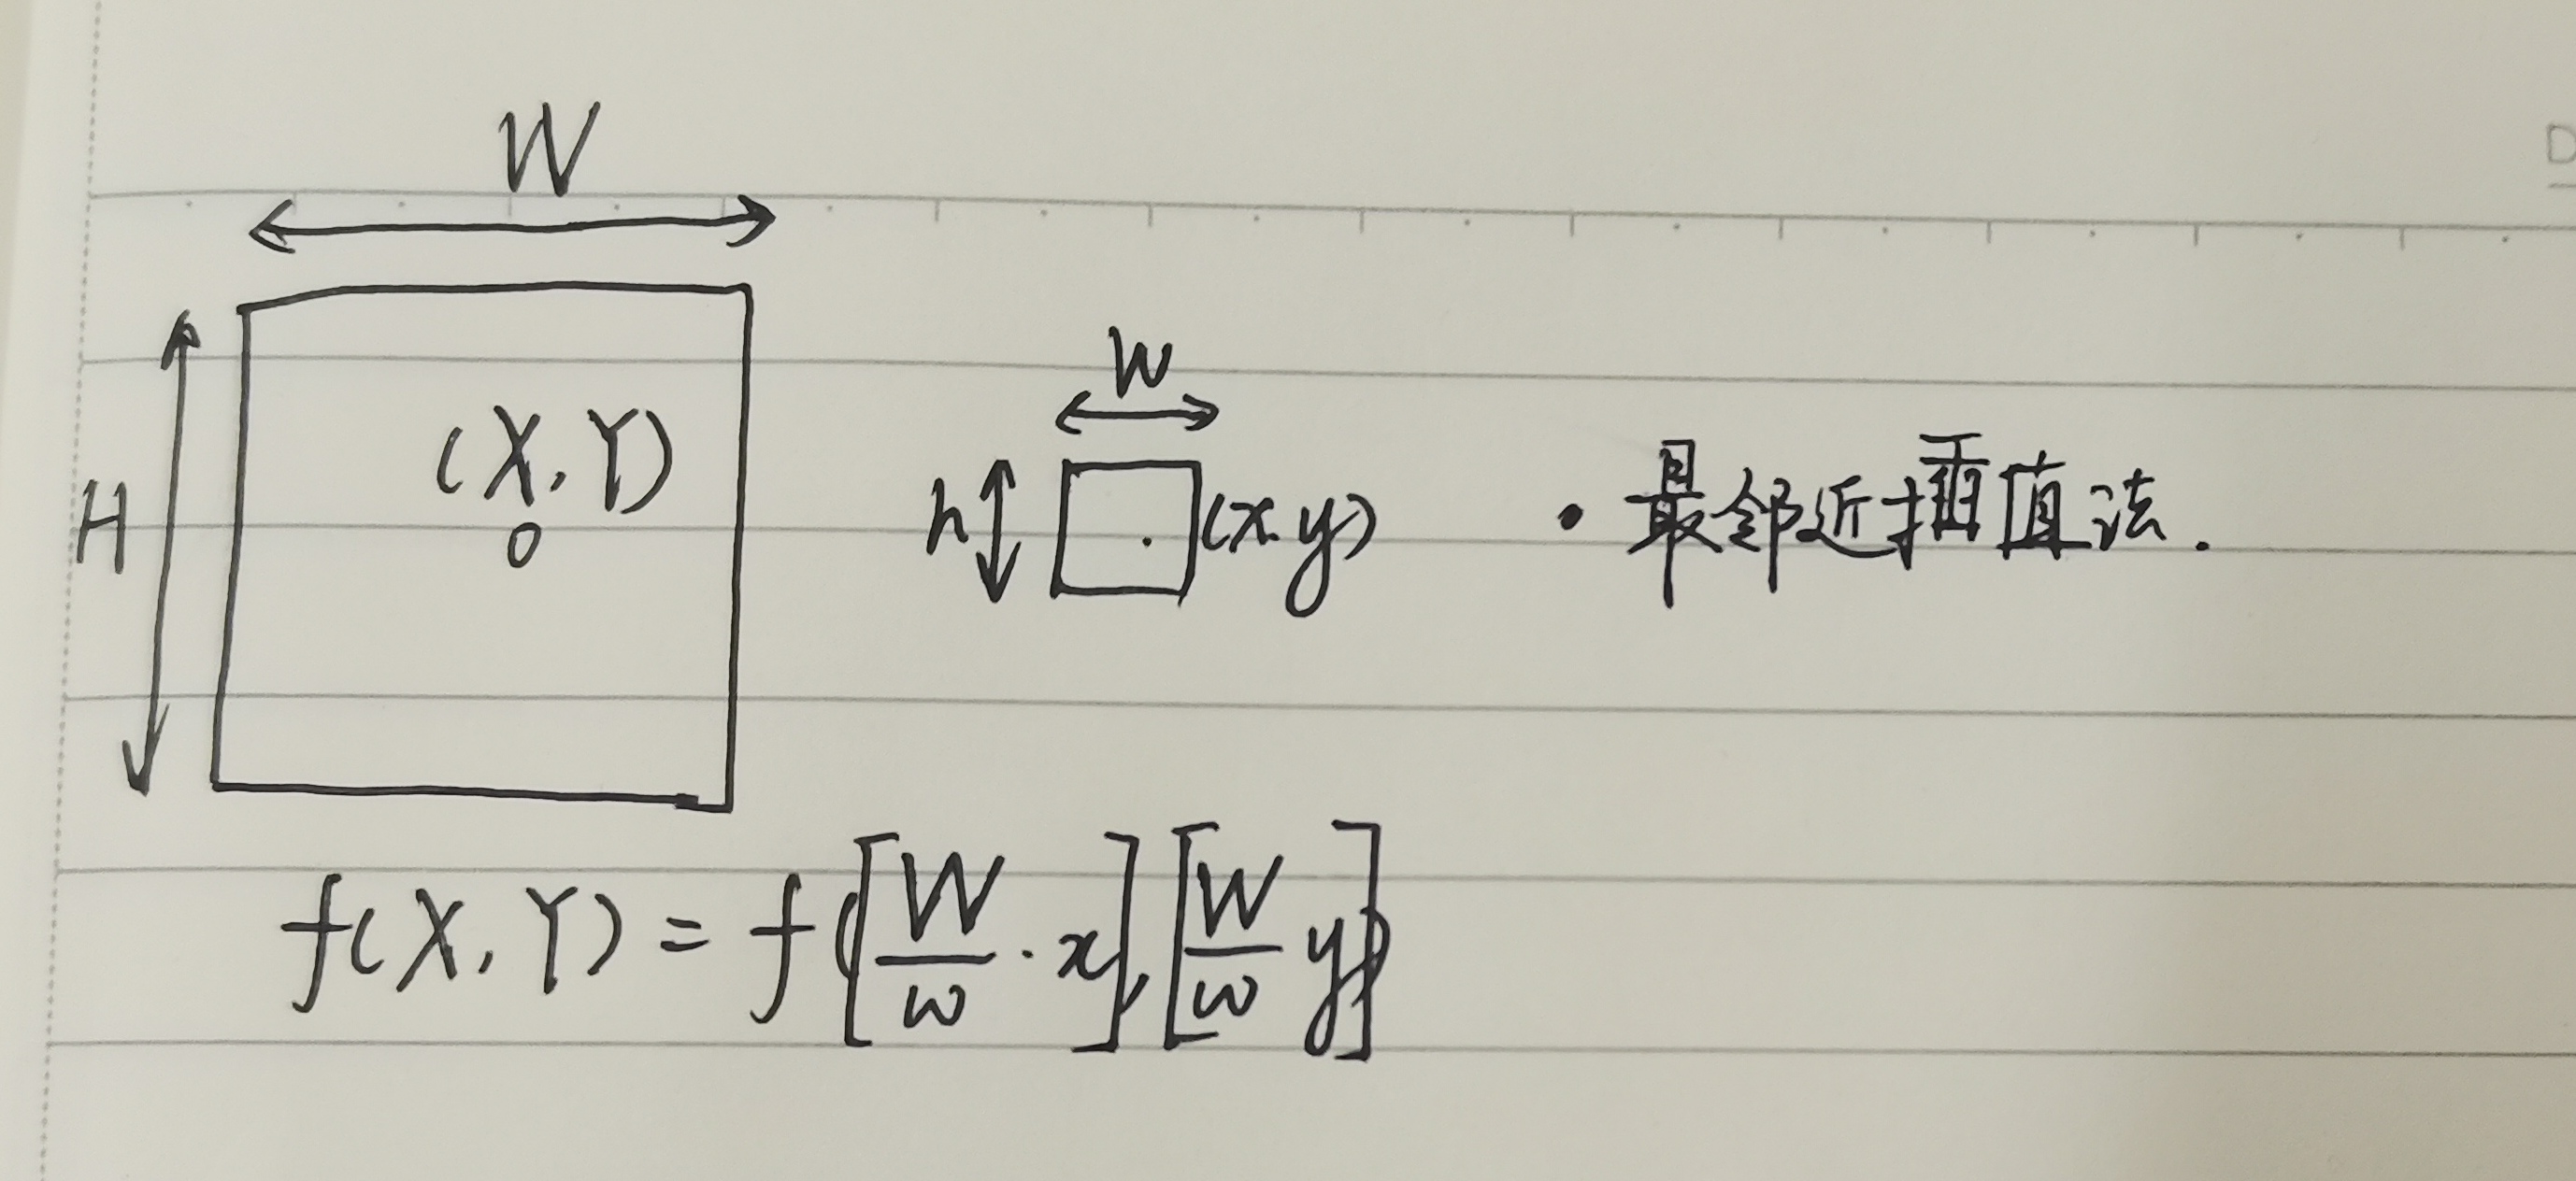 W
H
(X,Y)
w
h
(x.y)
·最邻近插值法.
f(X,Y)=f([W/w·x],[W/w y])
D